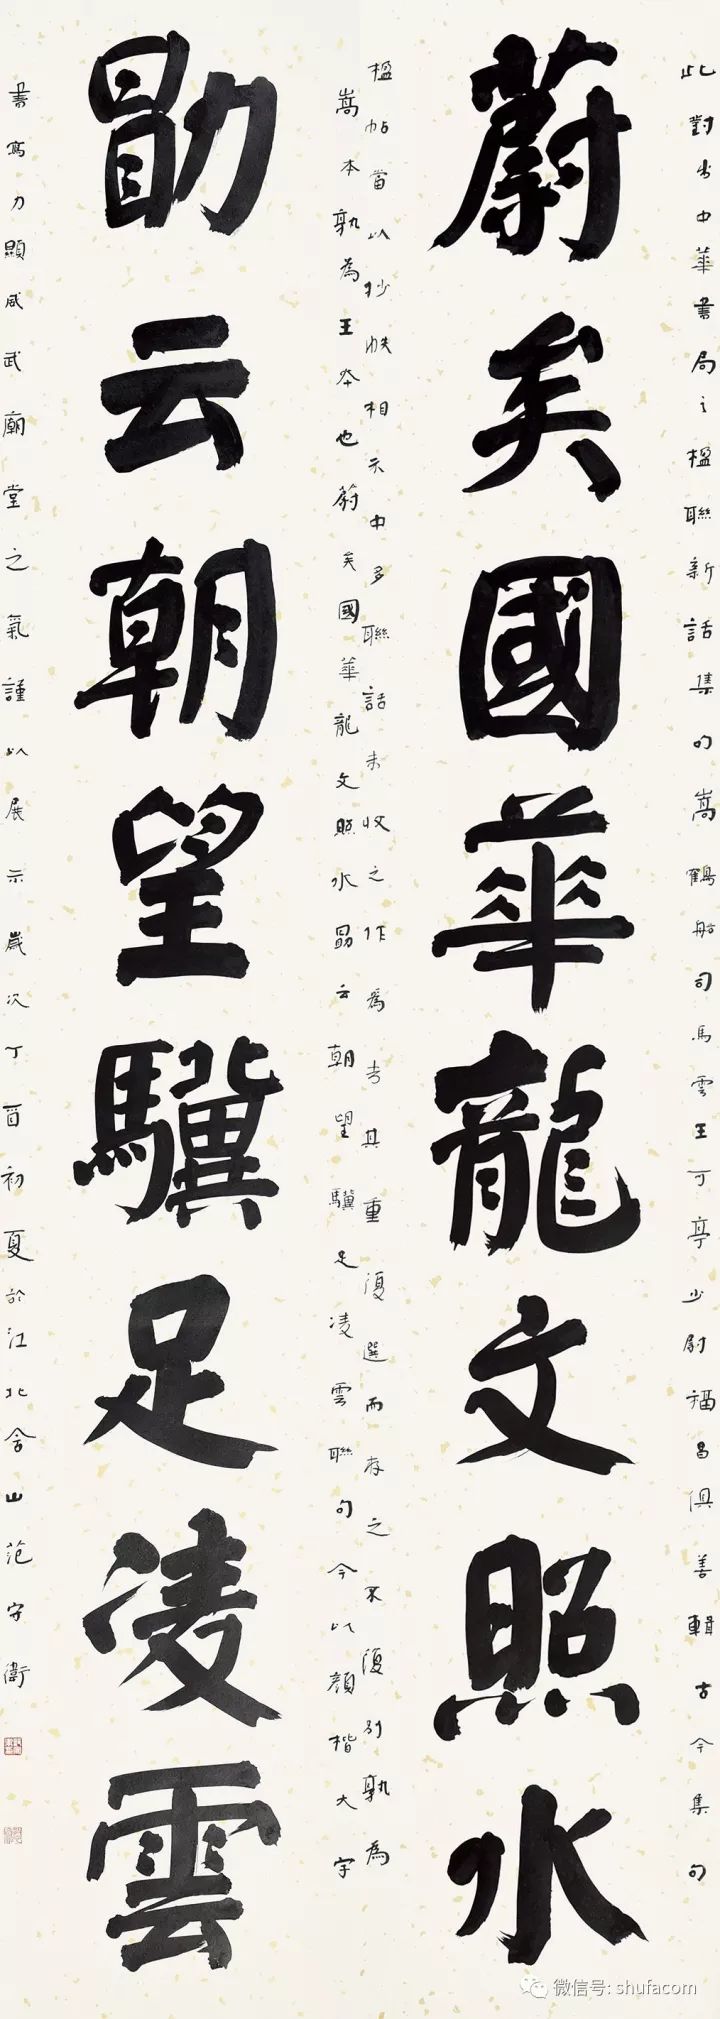 此對出中華書局之楹聯新話集句嵩鶴船司馬雲王可亭少尉福昌俱善輯古今集句
蔚矣國華龍文照水
楹帖嘗以抄帙相示中多聯話未收之作為去其重復選而存之不復別孰為
嵩本孰為王本也蔚矣國華龍文照水勗云朝望驥足凌雲聯句今以顏楷大字
勖云朝望驥足凌雲
書寫力顯威武廟堂之氣謹以展示歲次丁酉初夏於江北含山范守衛
微信号: shufacom